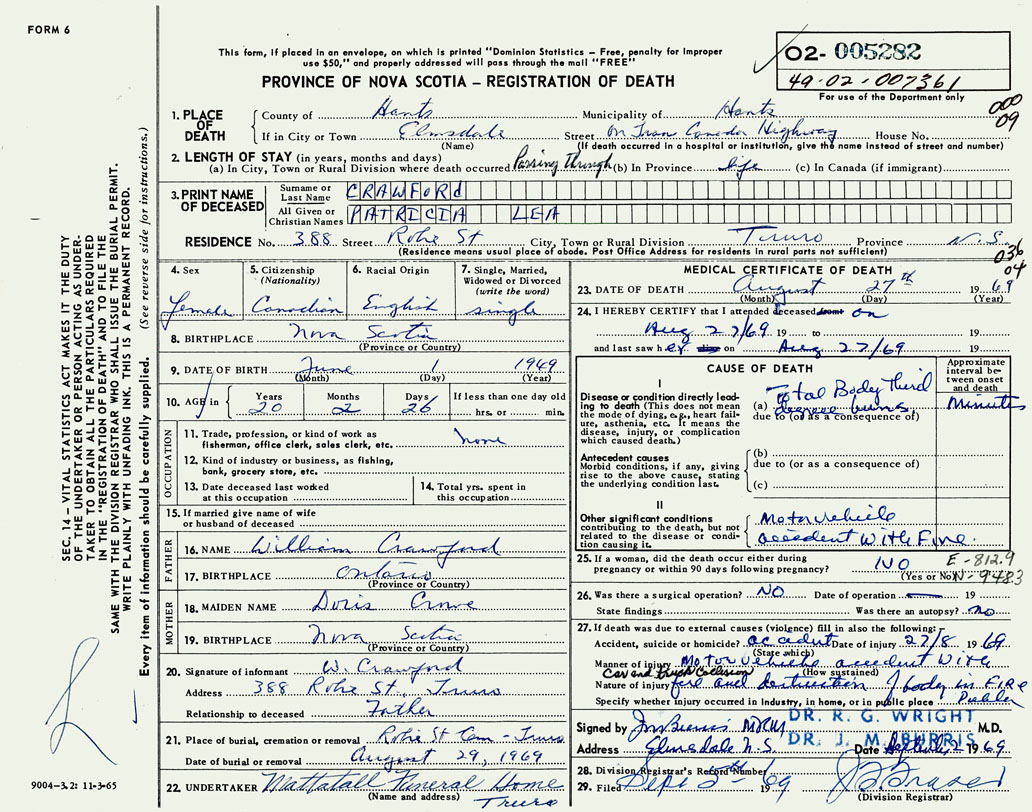 FORM 6
This form, if placed in an envelope, on which is printed "Dominion Statistics – Free, penalty for improper
use $50," and properly addressed will pass through the mail "FREE"
PROVINCE OF NOVA SCOTIA – REGISTRATION OF DEATH
02- 005282
49-02-007361
For use of the Department only
000
09
1. PLACE OF DEATH
County of Hants Municipality of Hants
If in City or Town Elmsdale Street on Trans Canada Highway House No.
(Name) (If death occurred in a hospital or institution, give the name instead of street and number)
2. LENGTH OF STAY (in years, months and days)
(a) In City, Town or Rural Division where death occurred Passing through (b) In Province Life (c) In Canada (if immigrant)
3. PRINT NAME OF DECEASED
Surname or Last Name CRAWFORd
All Given or Christian Names PATRICIA LEA
RESIDENCE No. 388 Street Robie St City, Town or Rural Division Truro Province N.S.
(Residence means usual place of abode. Post Office Address for residents in rural parts not sufficient)
036
04
4. Sex
female
5. Citizenship
(Nationality)
Canadian
6. Racial Origin
English
7. Single, Married,
Widowed or Divorced
(write the word)
single
8. BIRTHPLACE Nova Scotia
(Province or Country)
9. DATE OF BIRTH June 1 1949
(Month) (Day) (Year)
10. AGE in
Years Months Days If less than one day old
20 2 26 hrs. or min.
OCCUPATION
11. Trade, profession, or kind of work as
fisherman, office clerk, sales clerk, etc. none
12. Kind of industry or business, as fishing,
bank, grocery store, etc.
13. Date deceased last worked
at this occupation
14. Total yrs. spent in
this occupation
15. If married give name of wife
or husband of deceased
FATHER
16. NAME William Crawford
17. BIRTHPLACE Ontario
(Province or Country)
MOTHER
18. MAIDEN NAME Doris Crowe
19. BIRTHPLACE Nova Scotia
(Province or Country)
20. Signature of informant W. Crawford
Address 388 Robie St, Truro
Relationship to deceased Father
21. Place of burial, cremation or removal Robie St Cem - Truro
Date of burial or removal August 29, 1969
22. UNDERTAKER Mattatall Funeral Home
(Name and address) Truro
MEDICAL CERTIFICATE OF DEATH
23. DATE OF DEATH August 27th 1969
(Month) (Day) (Year)
24. I HEREBY CERTIFY that I attended deceased from on
Aug 27/69 19 to 19
and last saw her on Aug 27/69 19
CAUSE OF DEATH
Approximate interval between onset and death
I
Disease or condition directly leading to death (This does not mean the mode of dying, e.g., heart failure, asthenia, etc. It means the disease, injury, or complication which caused death.)
(a) Total Body Third
degree burns
due to (or as a consequence of)
Minutes
Antecedent causes
Morbid conditions, if any, giving rise to the above cause, stating the underlying condition last.
(b)
due to (or as a consequence of)
(c)
II
Other significant conditions
contributing to the death, but not related to the disease or condition causing it.
Motor vehicle
accident with Fire.
25. If a woman, did the death occur either during
pregnancy or within 90 days following pregnancy? NO
(Yes or No)
E-812.9
N-948.3
26. Was there a surgical operation? NO Date of operation 19
State findings Was there an autopsy? no
27. If death was due to external causes (violence) fill in also the following:
Accident, suicide or homicide? accident Date of injury 27/8 1969
(State which)
Manner of injury Motor vehicle accident with
Car and truck Collision (How sustained)
Nature of injury fire and destruction of body in FIRE
Specify whether injury occurred in Industry, in home, or in public place Public
DR. R. G. WRIGHT
Signed by M.D.
DR. J. M. BURRIS
Address Elmsdale N.S. Date 1969
28. Division Registrar's Record Number
29. Filed Sept 5 1969
(Division Registrar)
SEC. 14 – VITAL STATISTICS ACT MAKES IT THE DUTY
OF THE UNDERTAKER OR PERSON ACTING AS UNDER-
TAKER TO OBTAIN ALL THE PARTICULARS REQUIRED
IN THE "REGISTRATION OF DEATH" AND TO FILE THE
SAME WITH THE DIVISION REGISTRAR WHO SHALL ISSUE THE BURIAL PERMIT.
WRITE PLAINLY WITH UNFADING INK. THIS IS A PERMANENT RECORD.
Every item of information should be carefully supplied. (See reverse side for instructions.)
9004-3.2: 11-3-65